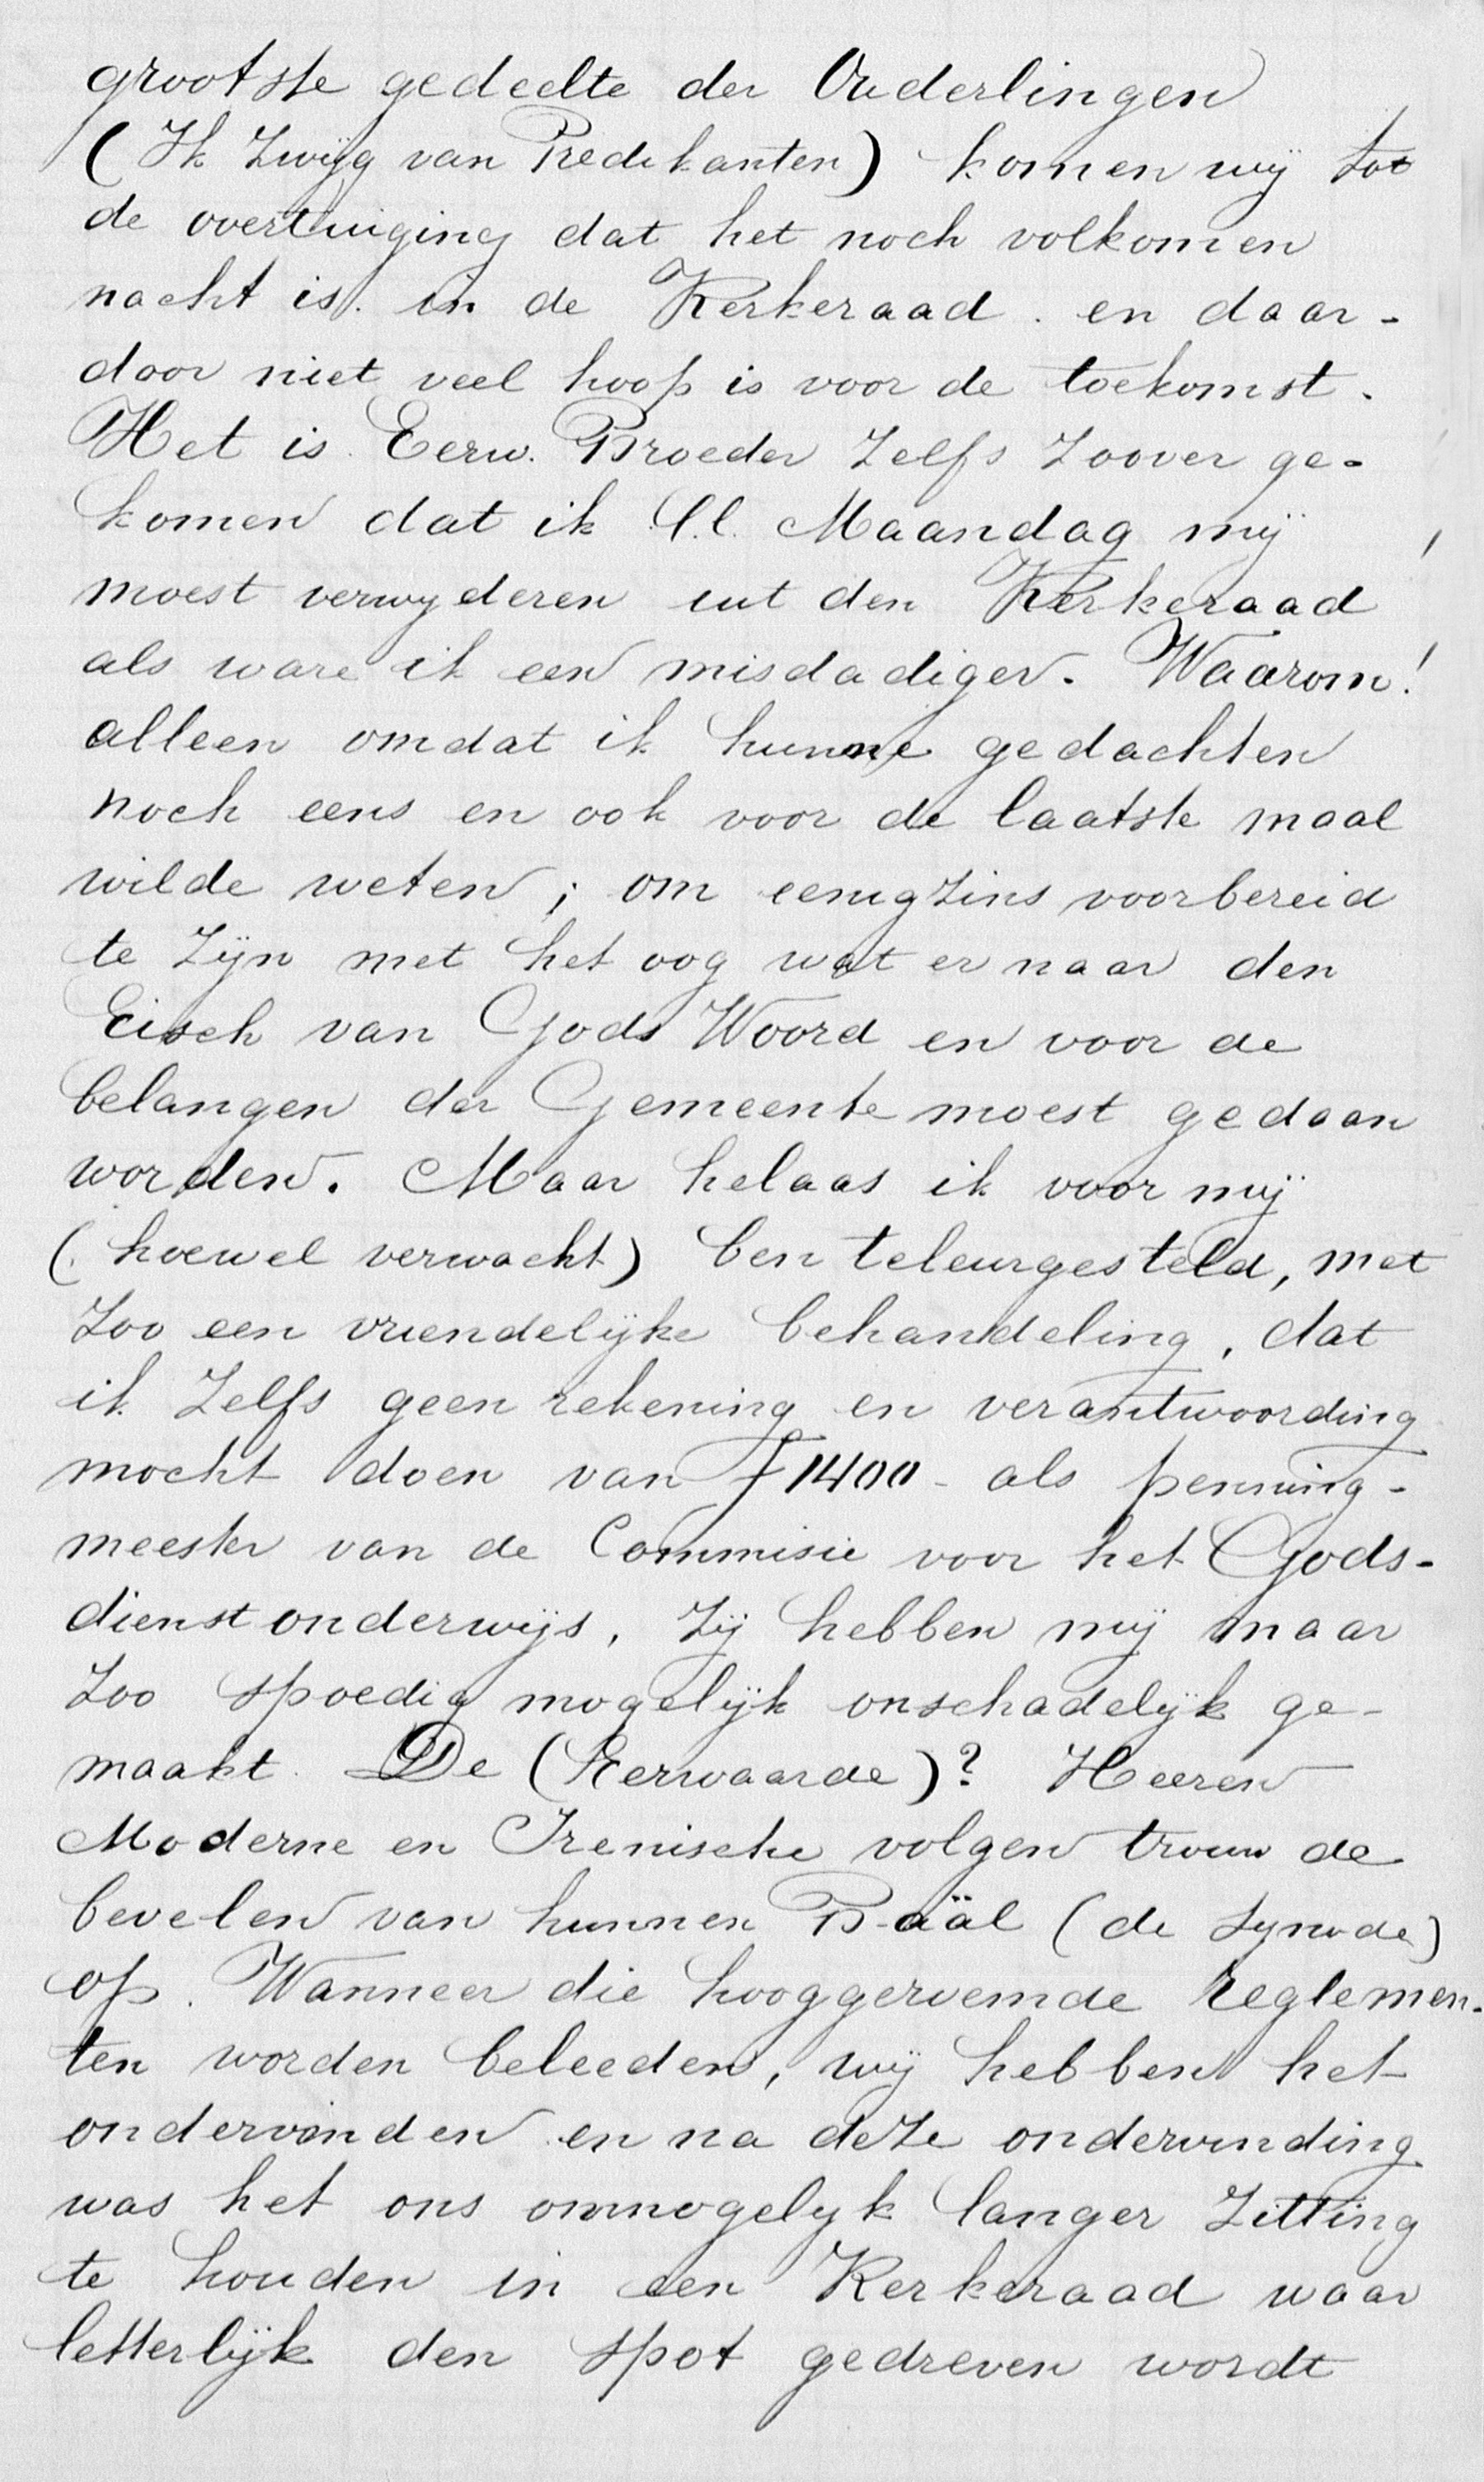 grootste gedeelte der Ouderlingen
(Ik zwijg van Predikanten) komen wij tot
de overtuiging dat het noch volkomen
nacht is. in de Kerkeraad. en daar-
door niet veel hoop is voor de toekomst.
Het is Eerw. Broeder zelfs zoover ge-
komen dat ik l.l. Maandag mij
moest verwyderen uit den Kerkeraad
als ware ik een misdadiger. Waarom!
alleen omdat ik hunne gedachten
noch eens en ook voor de laatste maal
wilde weten; om eenigzins voorbereid
te zijn met het oog wat er naar den
Eisch van Gods Woord en voor de
belangen der Gemeente moest gedaan
worden. Maar helaas ik voor mij
(hoewel verwacht) ben teleurgesteld, met
zoo een vriendelijke behandeling, dat
ik zelfs geen rekening en verantwoording
mocht doen van ƒ1400- als penning-
meester van de Commisie voor het Gods-
dienstonderwijs, zij hebben mij maar
zoo spoedig mogelijk onschadelijk ge-
maakt. De (Eerwaarde)? Heeren
Moderne en Irenische volgen trouw de
bevelen van hunnen Baäl (de synode)
op. Wanneer die hooggeroemde reglemen-
ten worden beleeden, wij hebben het
ondervonden en na deze ondervinding
was het ons onmogelyk langer zitting
te houden in een Kerkeraad waar
letterlijk den spot gedreven wordt